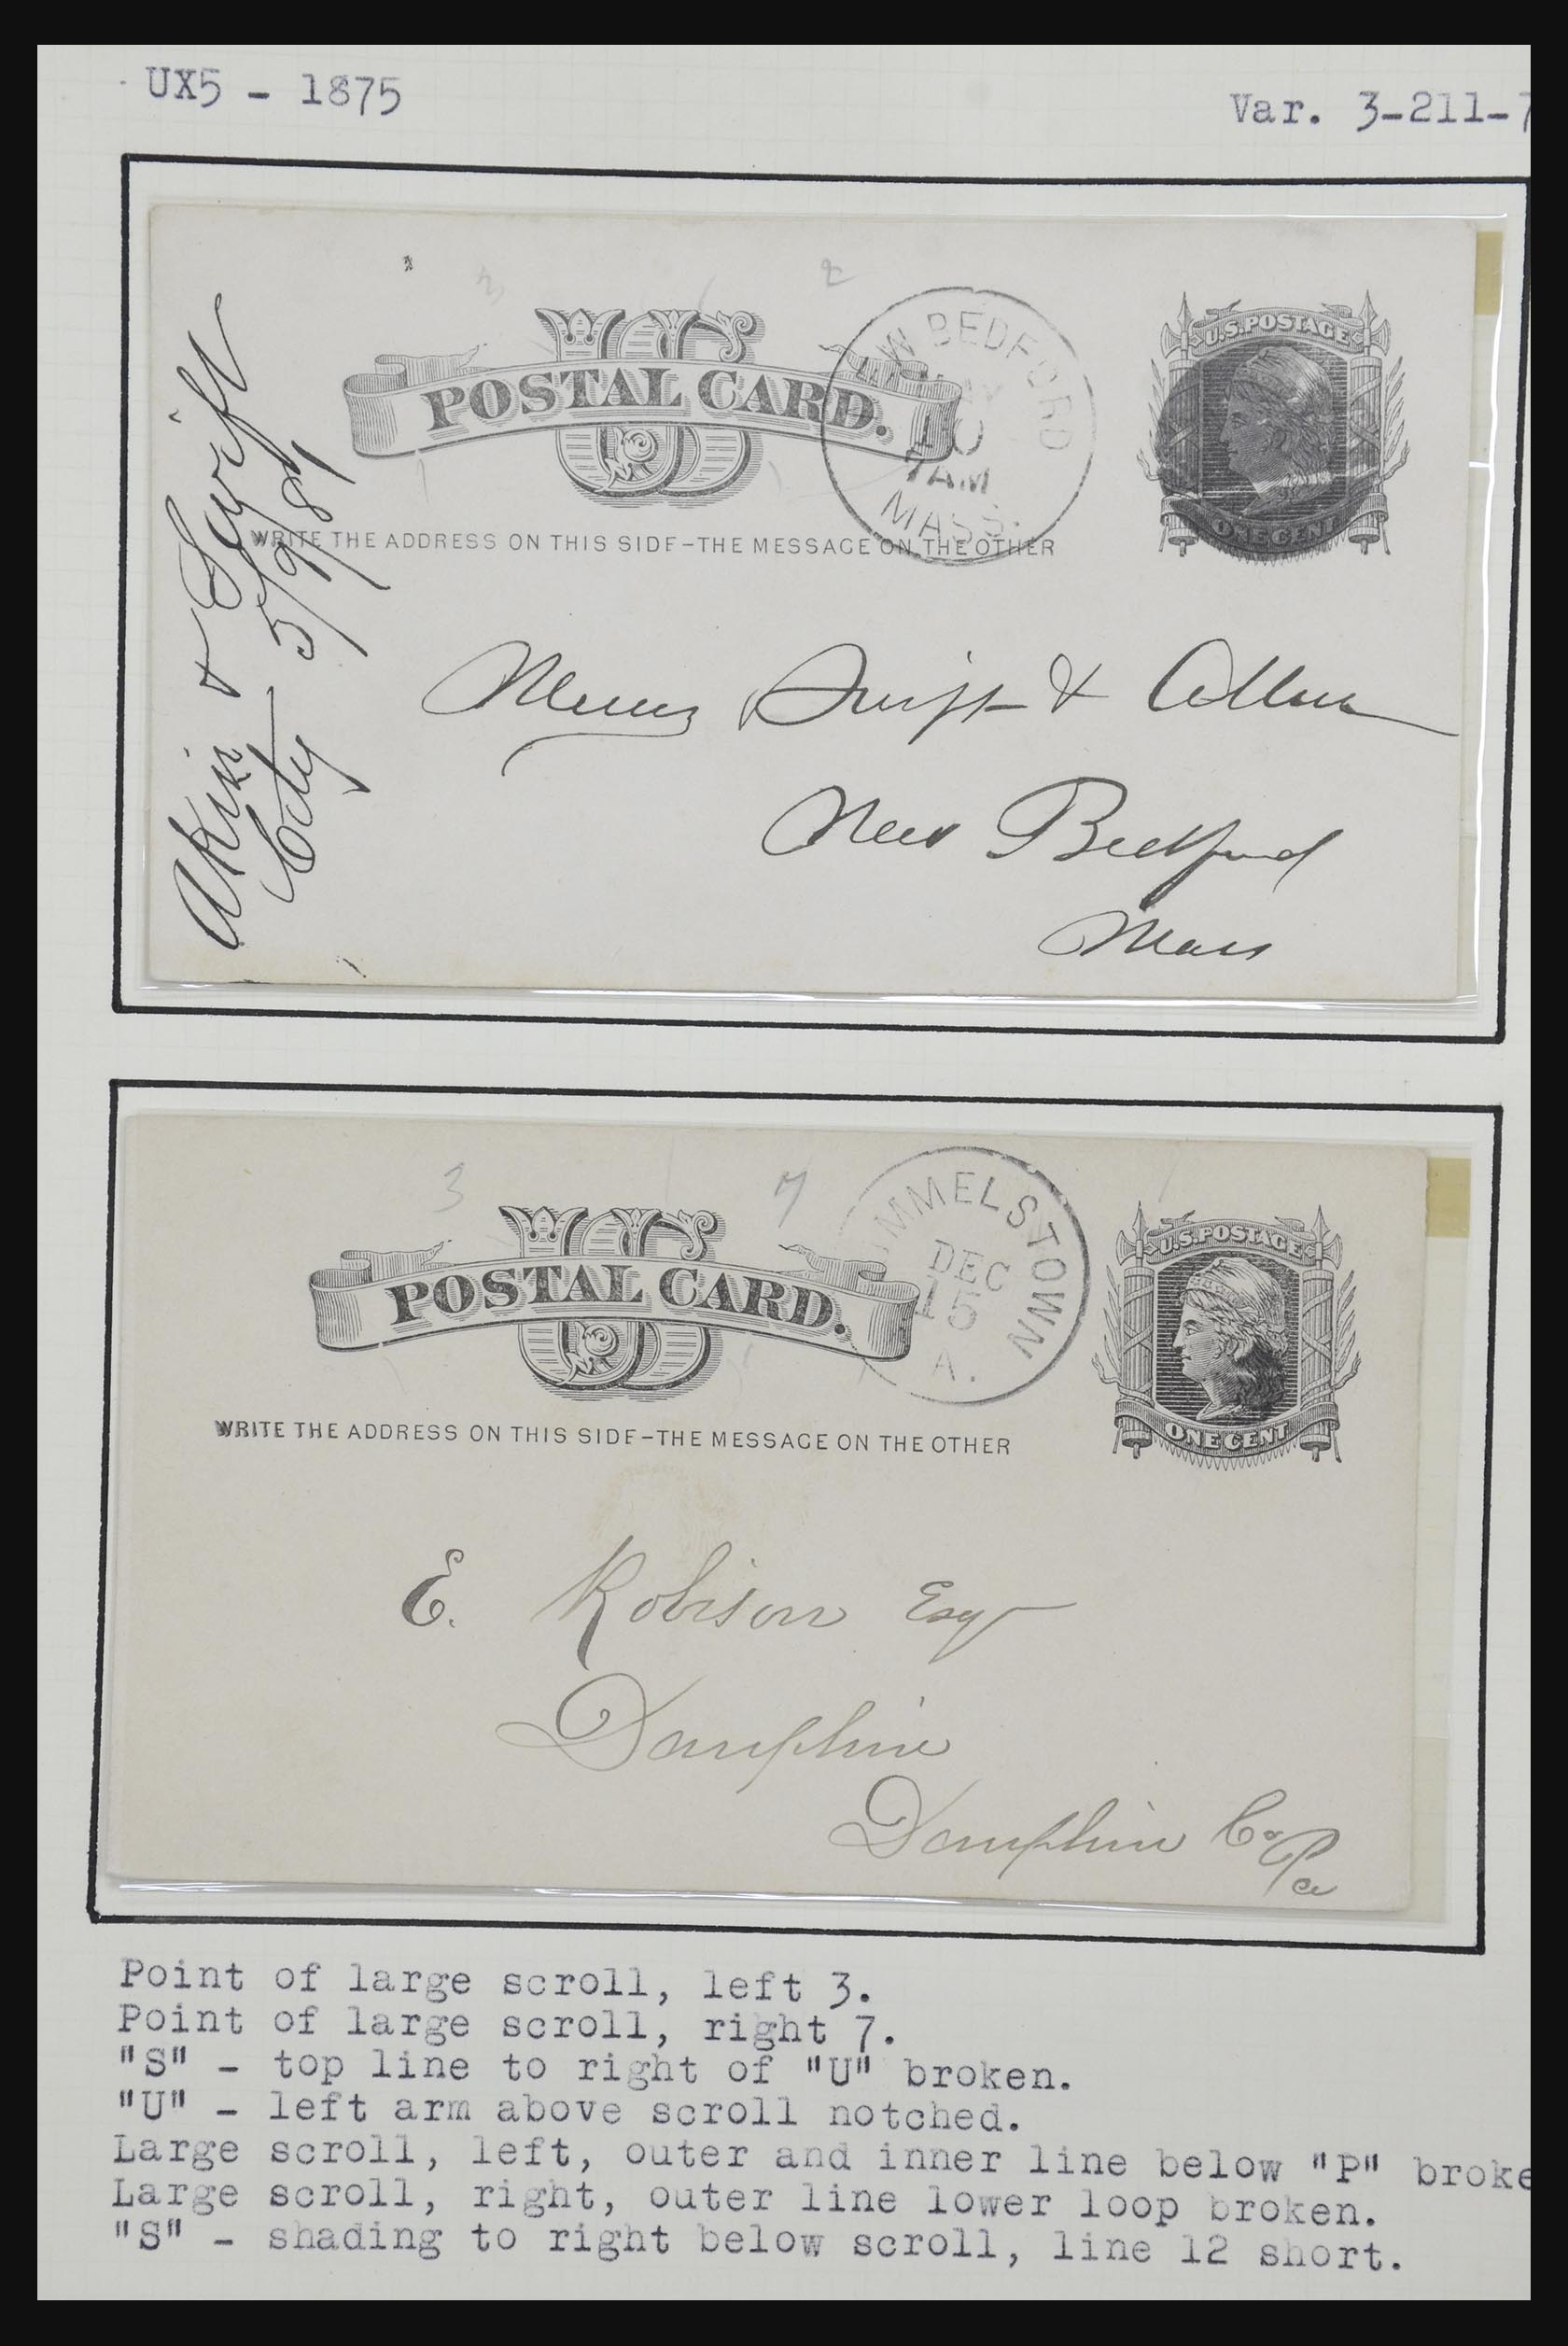 UX5 - 1875
Var. 3-211-7
2
POSTAL CARD.
W BEDFORD
10
7AM
MASS.
U.S. POSTAGE
ONE CENT
WRITE THE ADDRESS ON THIS SIDE-THE MESSAGE ON THE OTHER
Akin & Swift
City 5/9/81
Messrs Swift & Allen
New Bedford
Mass
3 7
US
POSTAL CARD.
MMELSTOWN
DEC
15
A.
U.S. POSTAGE
ONE CENT
WRITE THE ADDRESS ON THIS SIDE-THE MESSAGE ON THE OTHER
E. Robison Esq
Dauphin
Dauphin Co Pa
Point of large scroll, left 3.
Point of large scroll, right 7.
"S" - top line to right of "U" broken.
"U" - left arm above scroll notched.
Large scroll, left, outer and inner line below "P" broke
Large scroll, right, outer line lower loop broken.
"S" - shading to right below scroll, line 12 short.